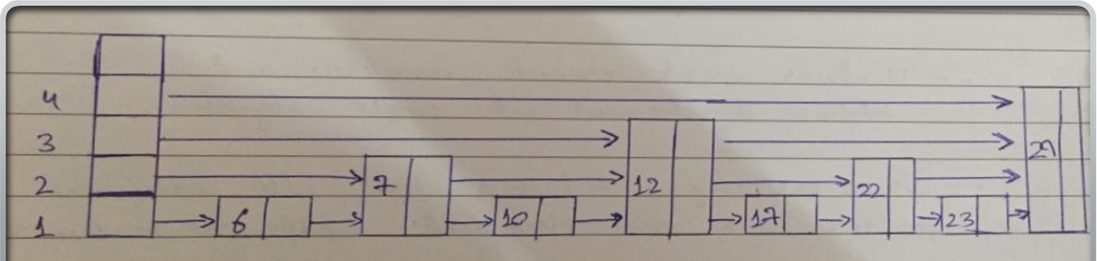 4
3
2
1
6
7
10
12
17
22
23
29